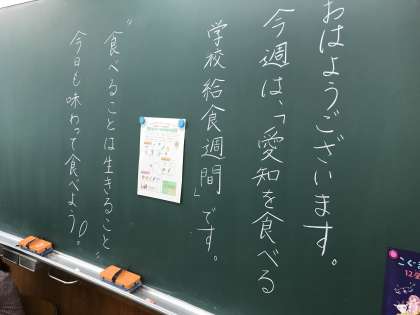 おはようございます。
今週は、「愛知を食べる
学校給食週間」です。
"食べることは生きること"
今日も味わって食べよう。